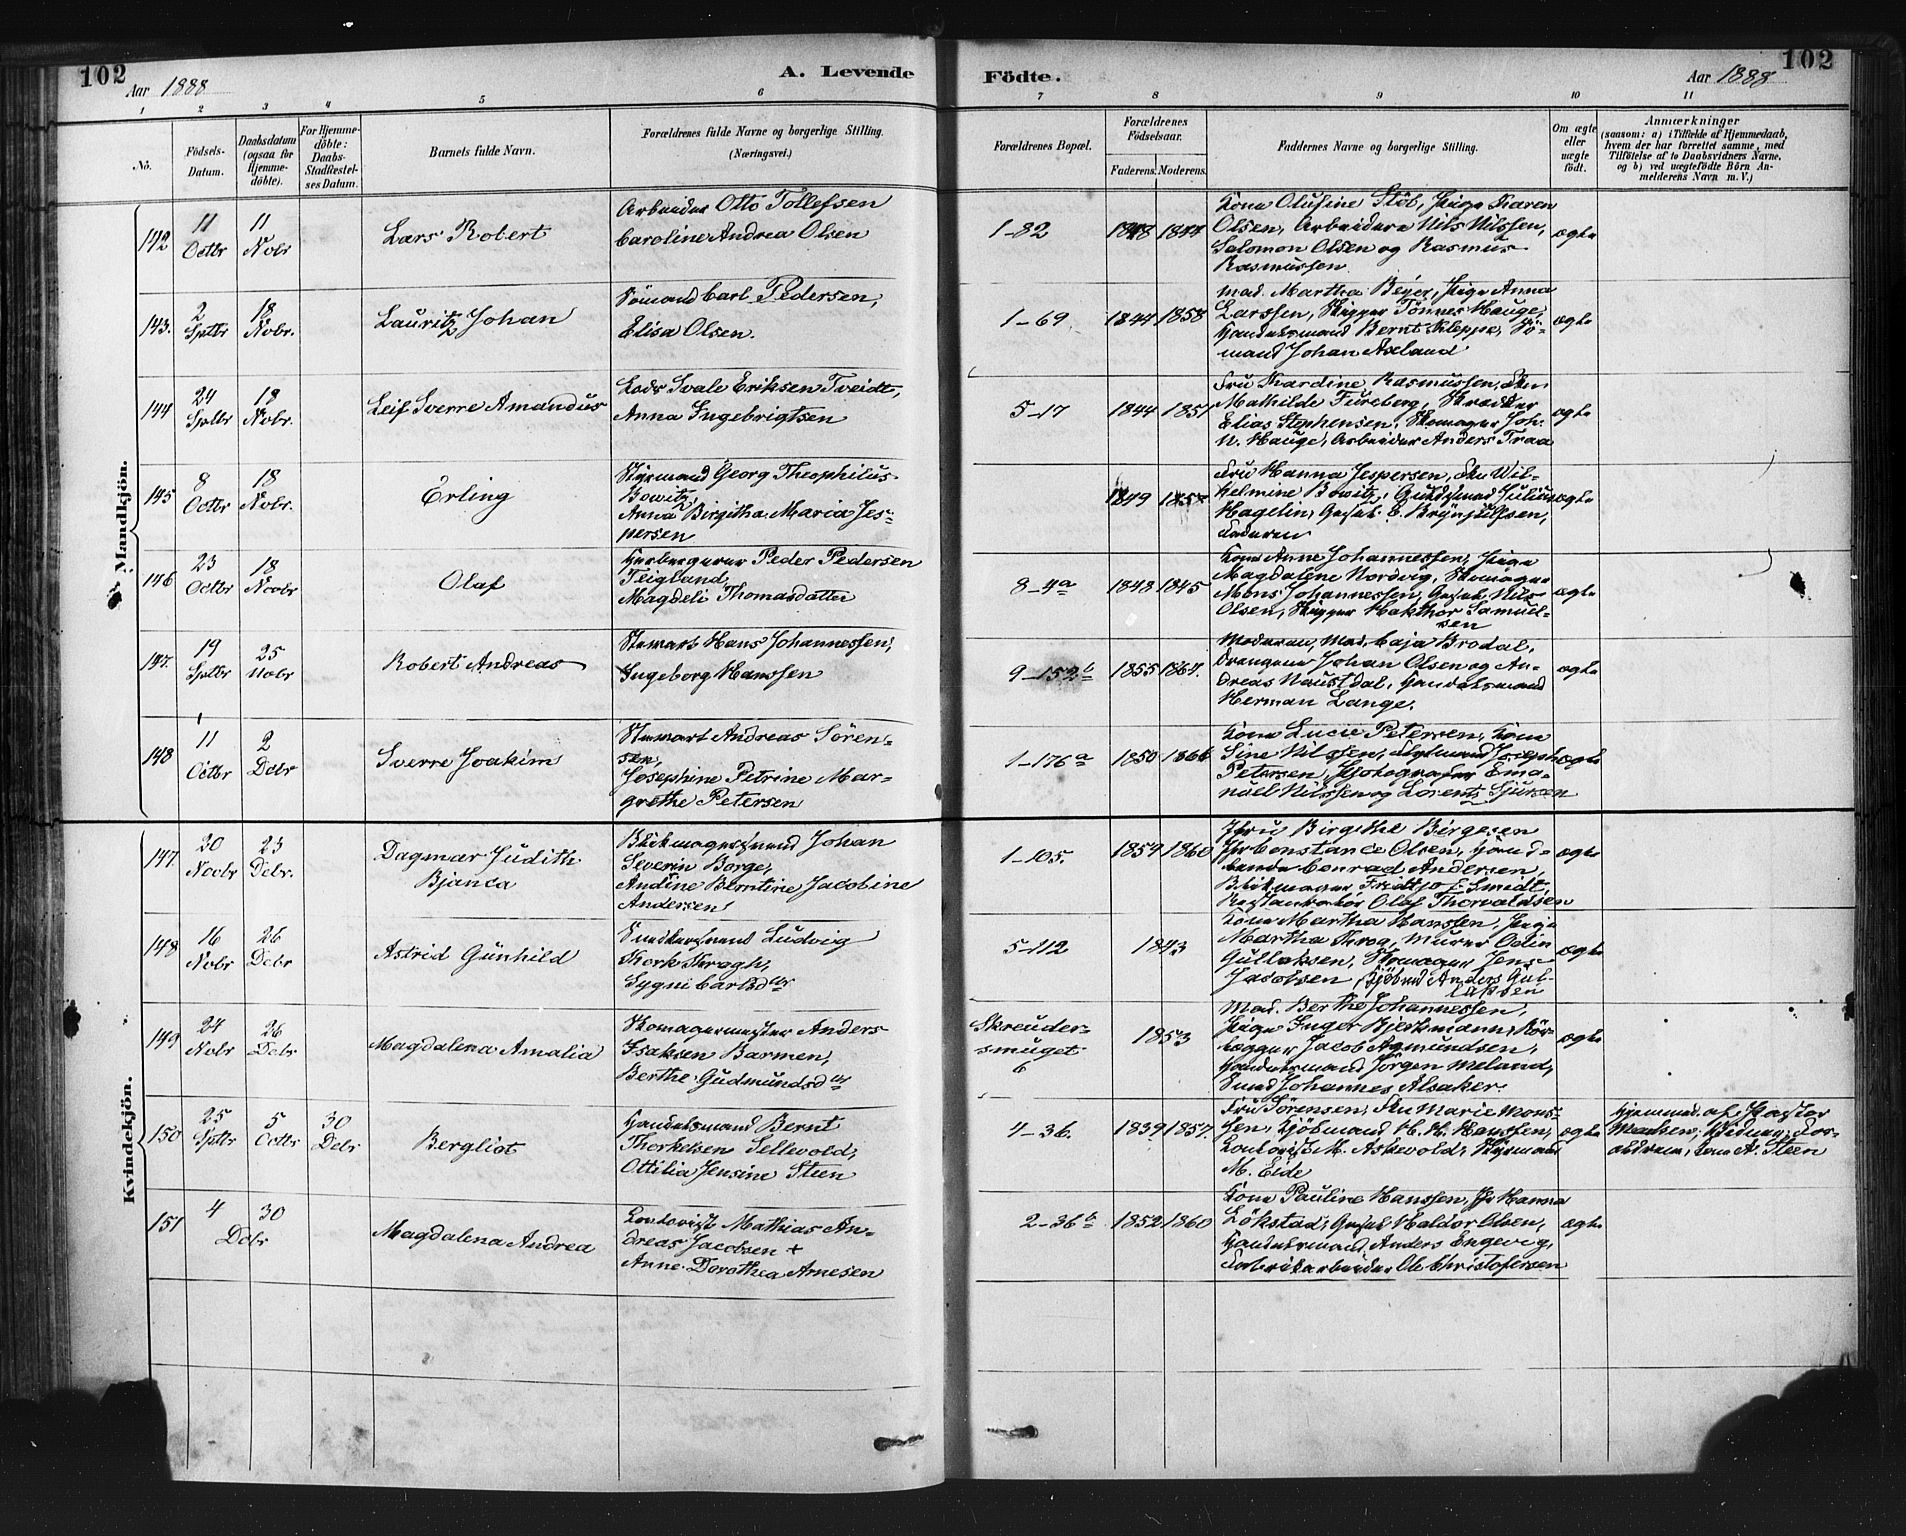 102
Aar 1888
A. Levende
Födte.
Aar 1888
102
1
2
3
4
5
6
7
8
9
10
11
No.
Födsels-
Datum.
Daabsdatum
(ogsaa for
Hjemme-
döbte).
For Hjemme-
döbte:
Daabs-
Stadfæstel-
ses Datum.
Barnets fulde Navn.
Forældrenes fulde Navne og borgerlige Stilling.
(Næringsvei.)
Forældrenes Bopæl.
Forældrenes
Födselsaar.
Faderens.
Moderens.
Faddernes Navne og borgerlige Stilling.
Om ægte
eller
uægte
födt.
Anmærkninger
(saasom: a) i Tilfælde af Hjemmedaab,
hvem der har forrettet samme, med
Tilföielse af to Daabsvidners Navne,
og b) ved uægtefödte Börn An-
melderens Navn m. V.)
Mandkjön.
142
11
Octbr
11
Nobr
Lars Robert
Arbeider Otto Tollefsen
Caroline Andrea Olsen
1-82
1848
1844
Kone Olufine Stöb, Pige Karen
Olsen, Arbeidere Nils Nilssen,
Salomon Olsen og Rasmus
Rasmussen
ægte
143.
2
Sptbr
18
Nobr.
Lauritz Johan
Sömand Carl Pedersen,
Elisa Olsen.
1-69
1844
1858
Mad. Martha Beyer, Pige Anna
Larssen, Skipper Tönnes Hauge,
Handelsmand Bernt Kleppe, Sö-
mand Johan Axeland
ægte
144
24
Sptbr
18
Nobr.
Leif Sverre Amandus
Lods Svale Eriksen Tveidt,
Anna Ingebrigtsen
5-17
1844
1851
Fru Thardine Rasmussen, Frk
Mathilde Fureberg, Skrædder
Elias Stephensen, Skomager Joh.
N. Hauge, Arbeider Anders Traa
ægte
145
8
Octbr
18
Nobr.
Erling
Styrmand Georg Theophilus
Bowitz,
Anna Birgitha Maria Jes-
persen
1849
Fru Hanna Jespersen, Frk Wil-
helmine Bowitz, Guldsmed Julius
Hagelin, Gesel E. Brynjulfsen,
Faderen
ægte
146
23
Octbr
18
Novbr
Olaf
Herbergerer Peder Pedersen
Teigland,
Magdeli Thomasdatter
8-4a
1848
1845
Kone Anne Johannessen, Pige
Magdalene Nordvig, Skomager
Mons Johannessen, Gesel Nils
Olsen, Skipper Hakthor Samuel-
sen
ægte
147.
19
Sptbr
25
Nobr
Robert Andreas
Stewart Hans Johannessen,
Ingeborg Hanssen
9-152b
1855
1864.
Moderen, Mad. Caja Brodal,
Drengene Johan Olsen og An-
dreas Naustdal, Handelsmand
Herman Lange.
ægte
148
11
Octbr
2
Debr
Sverre Joakim
Stewart Andreas Sören-
sen,
Josephine Petrine Mar-
grethe Petersen
1-176a
1850
1866
Kone Lucie Petersen, Kone
Sine Nilssen, Styrmand Joseph
Petersen, Photografer Ema-
nuel Nilssen og Lorentz Sjursen
ægte
Kvindekjön.
147
30
Novbr
23
Debr.
Dagmar Judith
Bjanca
Blikmagersvend Johan
Severin Borge,
Andine Berntine Jacobine
Andersen
1-105.
1859
1860
Jfru Birgithe Birgesen
Jfr Constance Olsen, Hand-
lende Conrad Andersen,
Blikmager Fredtjof Smidt,
Restauratör Olaf Thorvaldsen
ægte
148
16
Nobr
26
Debr
Astrid Gunhild
Snedkersvend Ludvig
Thork Kragh,
Sygni Carlsdtr
5-112
1843
Kone Martha Hanssen, Pige
Martha Krog, Murer Odin
Gullaksen, Skomager Jens
Jacobsen, Kjöbmd Anders Gul-
laksen
ægte
149
24
Nobr
26
Debr
Magdalena Amalia
Skomagermester Anders
Isaksen Barmen,
Berthe Gudmundsdtr
Skreuder-
smuget
6
1853
Mad. Berthe Johannessen,
Pige Inger Bjerkmann, Rör-
lægger Jacob Asmundsen,
Handelsmand Jörgen Meland,
Svend Johannes Alsaker
ægte
150
25
Sptbr
5
Octbr
30
Debr
Bergliot
Handelsmand Bernt
Thorkelsen Sellevold,
Ottilia Jensine Steen
4-36.
1839
1857.
Fru Sörensen, Frk Marie Mons-
sen, Kjöbmand H. H. Hanssen,
Kontorist M. Askevold, Styrmand
M. Eide
ægte
Hjemmed. af Pastor
Madsen; Vidner: For-
ældrene, Kone A. Steen
151
4
30
Debr
Magdalena Andrea
Kontorist Mathias An-
dreas Jacobsen +
Anne Dorothea Arnesen
2-36b
1852
1860
Kone Pauline Hanssen, Jfr Hanna
Lökstad, Gesel Haldor Olsen,
Handelsmand Anders Engevig,
Fabrikarbeider Ole Christofersen
ægte